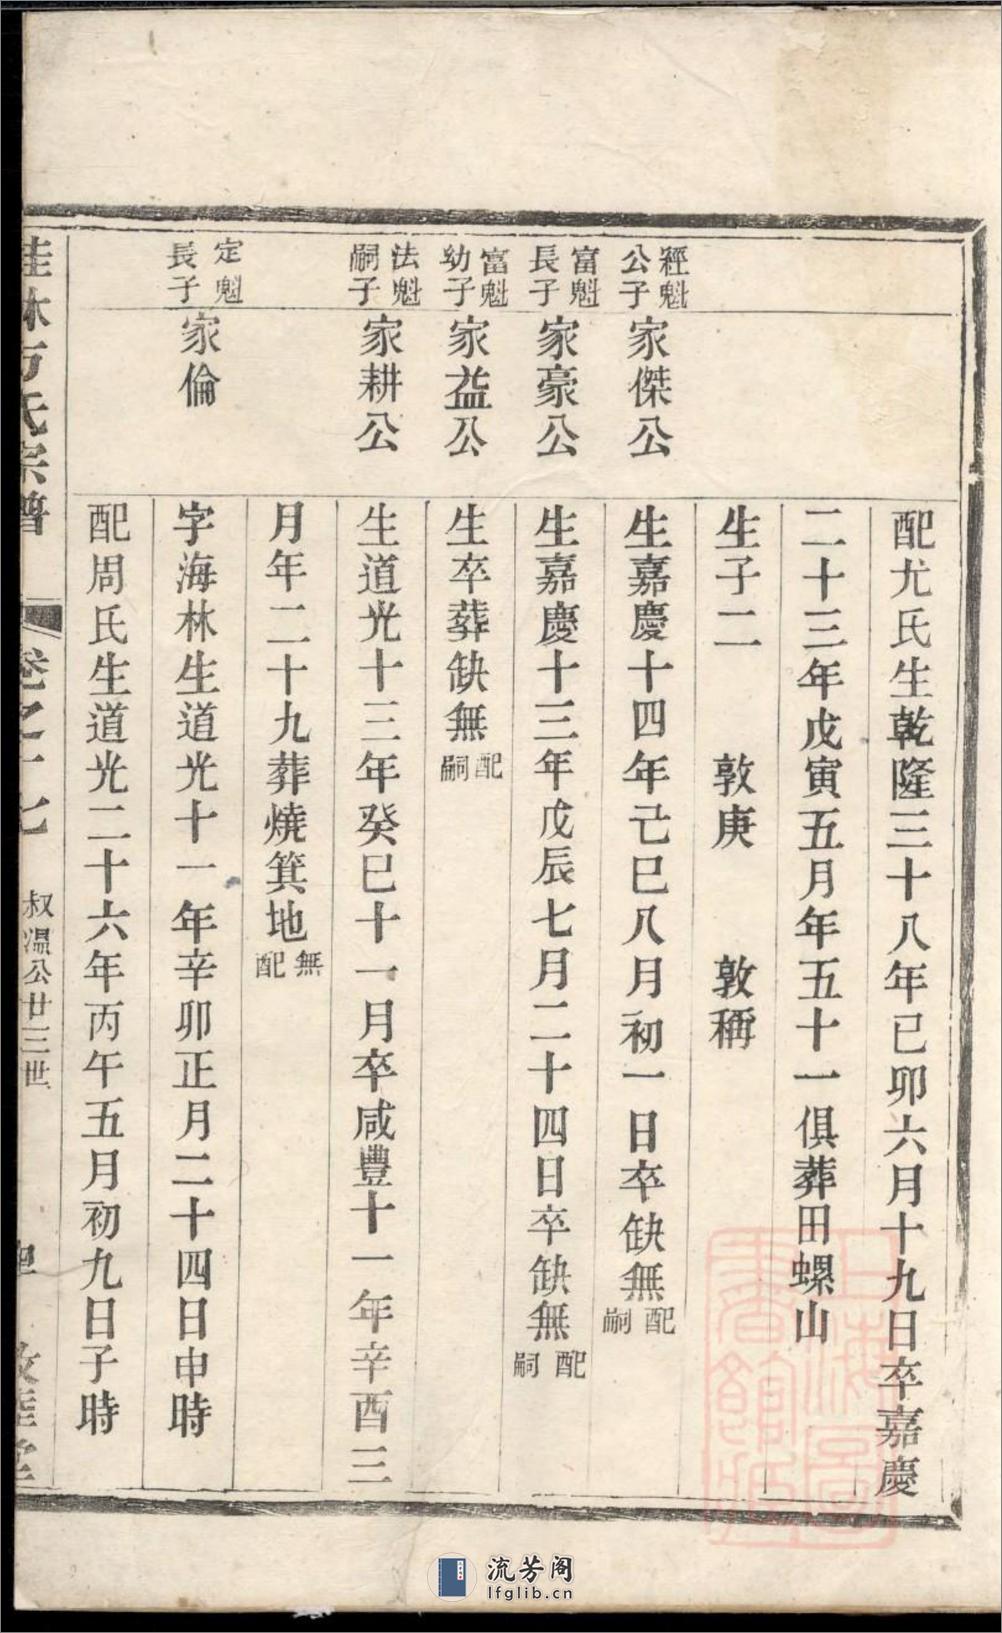 配尤氏生乾隆三十八年己卯六月十九日卒嘉慶
二十三年戊寅五月年五十一俱葬田螺山
生子二　敦庚　敦稱
經魁公子
家傑公
生嘉慶十四年己巳八月初一日卒缺無配嗣
富魁長子
家豪公
生嘉慶十三年戊辰七月二十四日卒缺無配嗣
富魁幼子
家益公
生卒葬缺無配嗣
法魁嗣子
家耕公
生道光十三年癸巳十一月卒咸豐十一年辛酉三
月年二十九葬燒箕地無配
定魁長子
家倫
字海林生道光十一年辛卯正月二十四日申時
配周氏生道光二十六年丙午五月初九日子時
桂林方氏宗譜
卷之十七
叔溫公廿三世
敦睦堂
上海圖書館藏
流芳阁
lfglib.cn